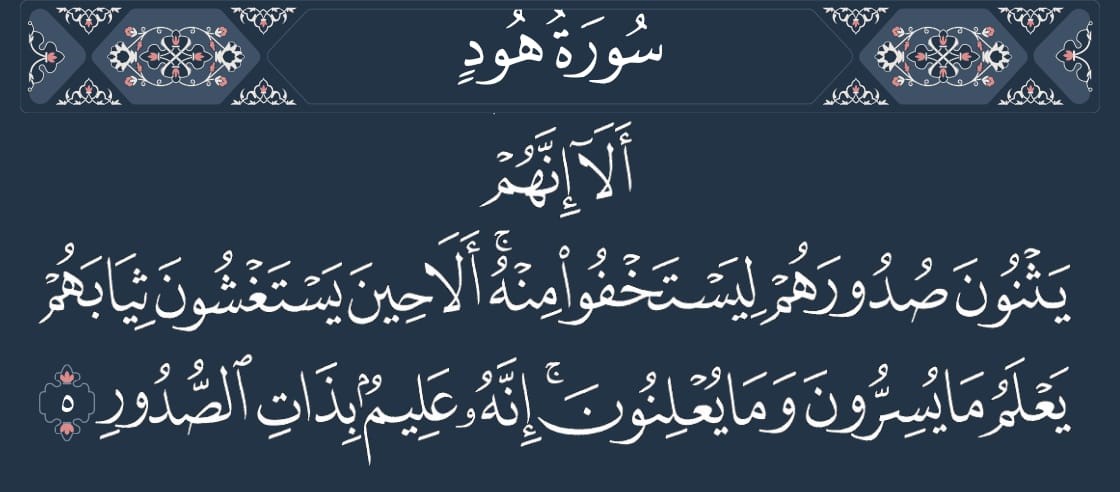 سُورَةُ هُودٍ
أَلَآ إِنَّهُمْ
يَثْنُونَ صُدُورَهُمْ لِيَسْتَخْفُوا۟ مِنْهُ ۚ أَلَا حِينَ يَسْتَغْشُونَ ثِيَابَهُمْ
يَعْلَمُ مَا يُسِرُّونَ وَمَا يُعْلِنُونَ ۚ إِنَّهُۥ عَلِيمٌۢ بِذَاتِ ٱلصُّدُورِ ٥